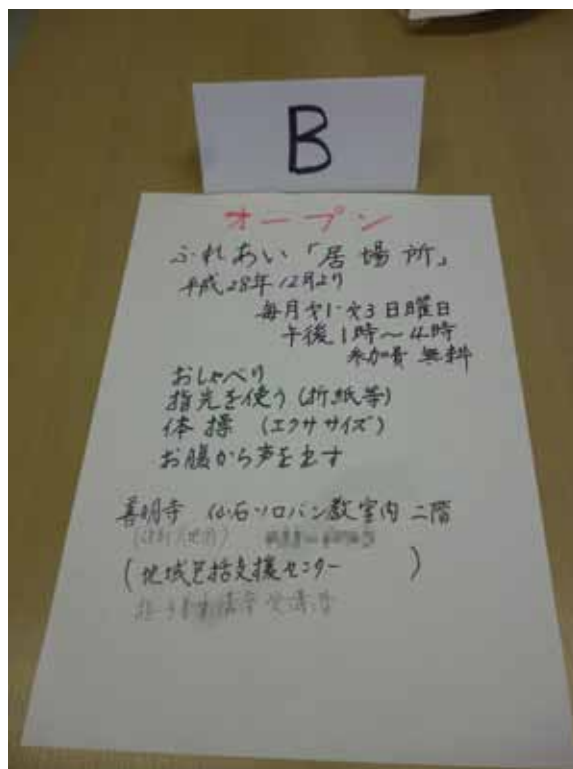 B
オープン
ふれあい「居場所」
平成28年12月より
毎月第1・第3日曜日
午後1時～4時
参加費 無料
おしゃべり
指先を使う(折紙等)
体操 (エクササイズ)
お腹から声を出す
善明寺 仙石ソロバン教室内 二階
(地域包括支援センター )